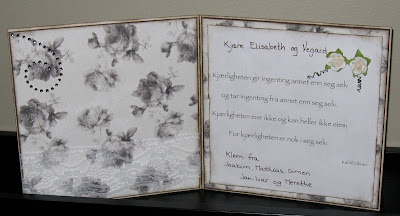 Kjære Elisabeth og Vegard
Kjærligheten gir ingenting annet enn seg selv
og tar ingenting fra annet enn seg selv.
Kjærligheten eier ikke og kan heller ikke eies;
For kjærligheten er nok i seg selv.
Kahlil Gibran
Klem fra
Joakim, Matthias, Simen
Jan-Ivar og Merethe